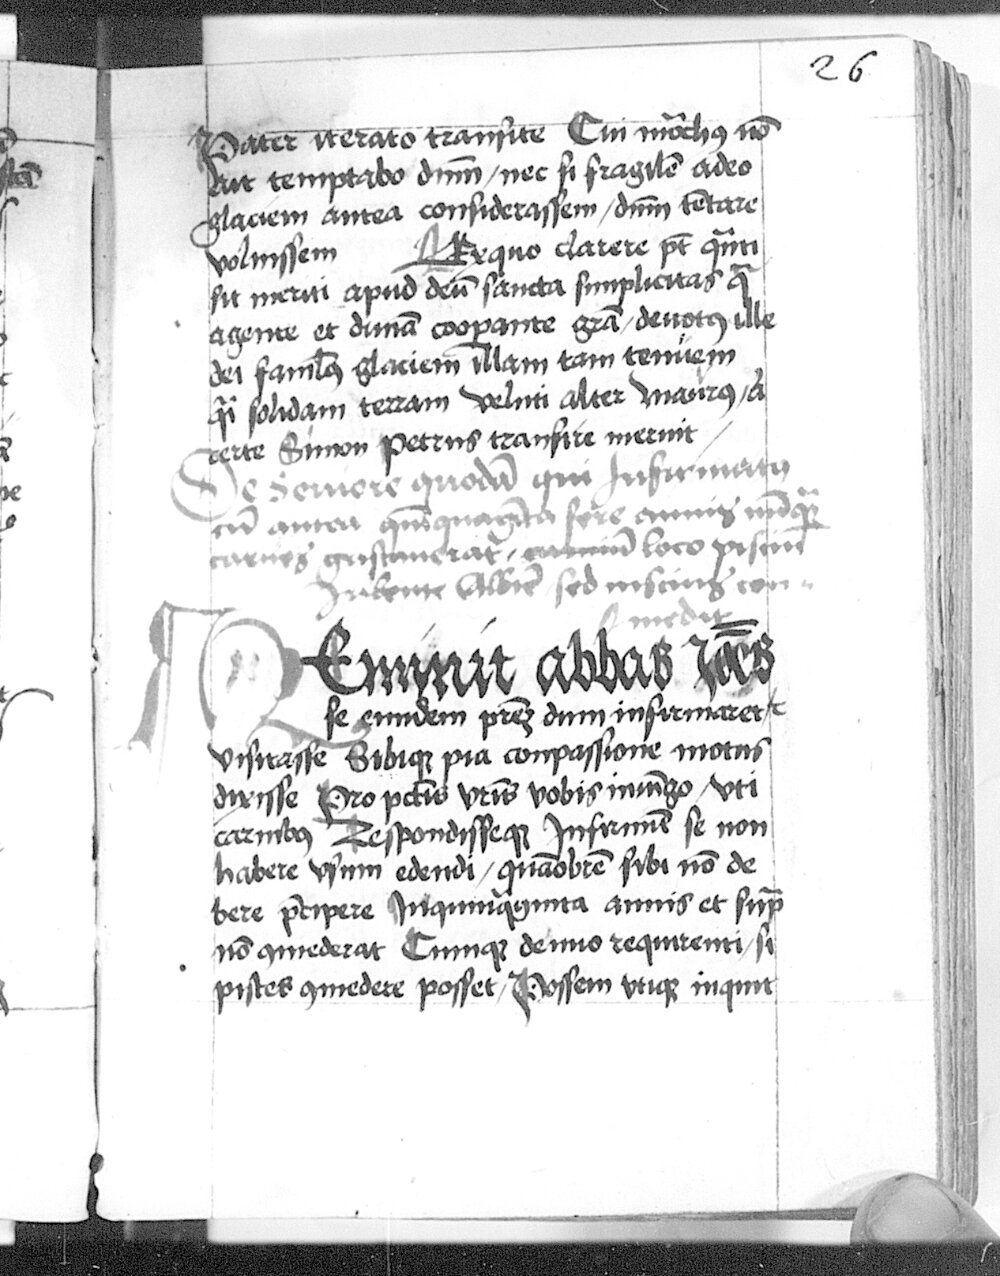 26
Pater iterato transite Cui mo̅chꝰ no̅
Ait temptabo dnm̅ / nec si fragile̅ adeo
glaciem antea considerassem / dnm̅ te̅tare
voluissem Ex quo clarere pt̅ qua̅ti
sit meriti apud deu̅ sancta simplicitas qᷓ
agente et diuina̅ coopante gra̅ / deuotꝰ ille
dei famlꝰ glaciem illam tam tenuem
qͣi solidam terram veluti alter Maurꝰ / a
certe Simon Petrus transire meruit
De Seniore quoda̅ qui Infirmatꝰ
cu̅ antea qui̅quagi̅ta fere annis nu̅qᷓ
carnes gustauerat / carniu̅ loco pisciu̅
Iubente Abbate sed inscius com-
medit
REminit abbas Joh̅es
se eundem pre̅ dum infirmaret᷑
visitasse Sibiqꝫ pia conpassione motus
dixisse Pro pctis̅ vris̅ vobis iniu̅go / vti
carnibꝰ Respondisseqꝫ Infirmu̅ se non
habere vsum edendi / qua̅obre̅ sibi no̅ de
bere p̅cipere In quinq̅ginta annis et sup̅
no̅ ꝯmederat Cumqꝫ denuo requirenti / si
pisces ꝯmedere posset / Possem vtiqꝫ inquit